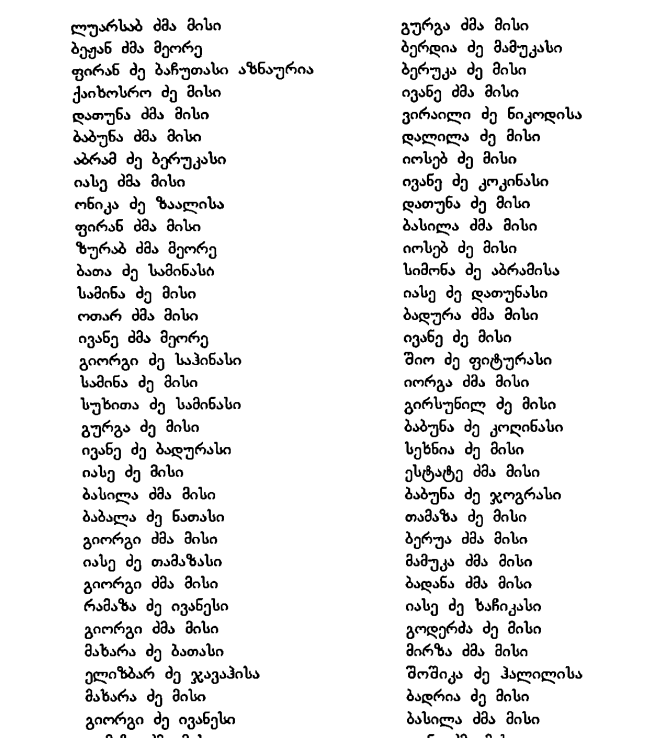 ლუარსაბ ძმა მისი
ბეჟან ძმა მეორე
ფირან ძე ბაჩუთასი აზნაურია
ქაიხოსრო ძე მისი
დათუნა ძმა მისი
ბაბუნა ძმა მისი
აბრამ ძე ბერუკასი
იასე ძმა მისი
ონიკა ძე ზაალისა
ფირან ძმა მისი
ზურაბ ძმა მეორე
ბათა ძე სამინასი
სამინა ძე მისი
ოთარ ძმა მისი
ივანე ძმა მეორე
გიორგი ძე საჰინასი
სამინა ძე მისი
სუხითა ძე სამინასი
გურგა ძე მისი
ივანე ძე ბადურასი
იასე ძე მისი
ბასილა ძმა მისი
ბაბალა ძე ნათასი
გიორგი ძმა მისი
იასე ძე თამაზასი
გიორგი ძმა მისი
რამაზა ძე ივანესი
გიორგი ძმა მისი
მახარა ძე ბათასი
ელიზბარ ძე ჯავაჰისა
მახარა ძე მისი
გიორგი ძე ივანესი
გურგა ძმა მისი
ბერდია ძე მამუკასი
ბერუკა ძე მისი
ივანე ძმა მისი
ვირაილი ძე ნიკოდისა
დალილა ძე მისი
იოსებ ძე მისი
ივანე ძე კოკინასი
დათუნა ძე მისი
ბასილა ძმა მისი
იოსებ ძე მისი
სიმონა ძე აბრამისა
იასე ძე დათუნასი
ბადურა ძმა მისი
ივანე ძე მისი
შიო ძე ფიტურასი
იორგა ძმა მისი
გირსუნილ ძე მისი
ბაბუნა ძე კოღინასი
სეხნია ძე მისი
ესტატე ძმა მისი
ბაბუნა ძე ჯოგრასი
თამაზა ძე მისი
ბერუა ძმა მისი
მამუკა ძმა მისი
ბადანა ძმა მისი
იასე ძე ხაჩიკასი
გოდერძა ძე მისი
მირზა ძმა მისი
შოშიკა ძე ჰალილისა
ბადრია ძე მისი
ბასილა ძმა მისი